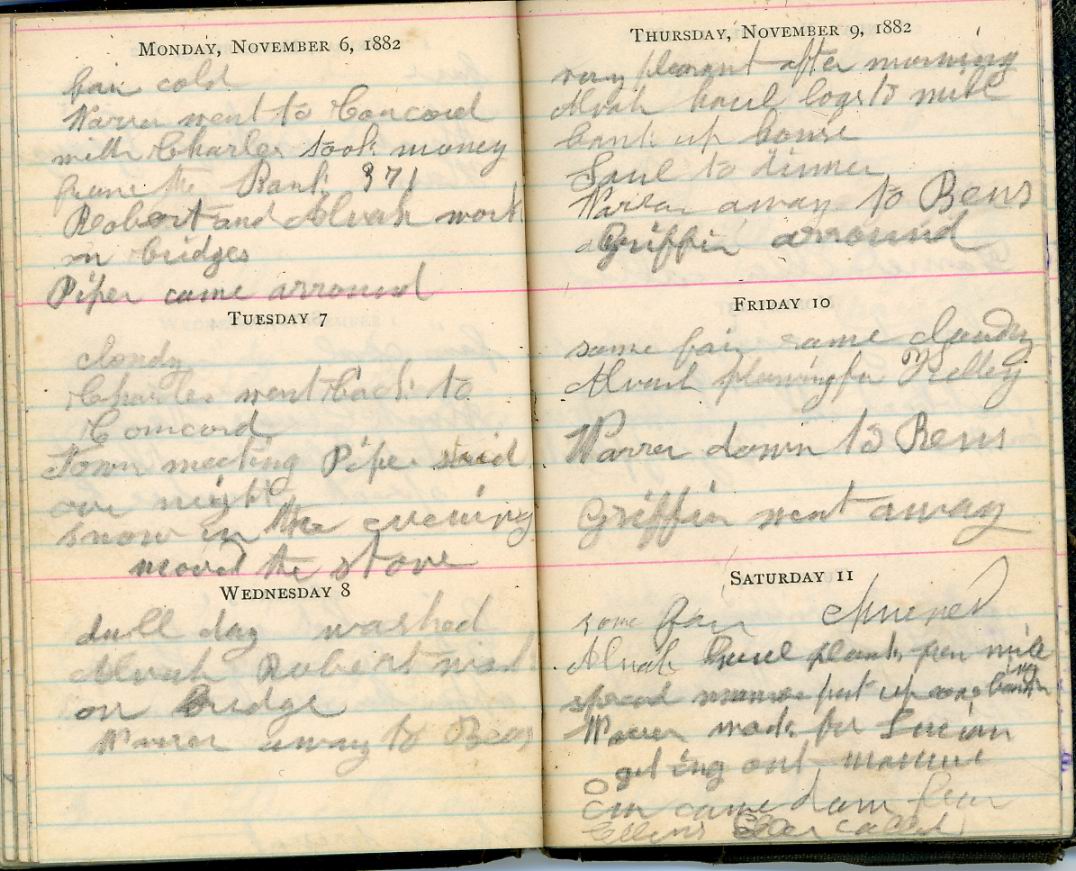 MONDAY, NOVEMBER 6, 1882
fair cold
Warren went to Concord
with Charles took money
from the Bank 371
Robert and Alvah work
on bridges
Piper came arround
TUESDAY 7
cloudy
Charles went back to
Concord
Town meeting Piper staid
over night
snow in the evening
moved the stove
WEDNESDAY 8
dull day washed
Alvah Robert work
on Bridge
Warren away to Bens
THURSDAY, NOVEMBER 9, 1882
very pleasant after morning
Alvah haul logs to mill
bank up house
Saul to dinner
Warren away to Bens
Griffin arround
FRIDAY 10
some fair some cloudy
Alvah plowing for Kelley
Warren down to Bens
Griffin went away
SATURDAY 11
some fair churned
Alvah haul plank from mill
spread manure put up
Warren work for Lucian
geting out manure
came down from
Ellens called